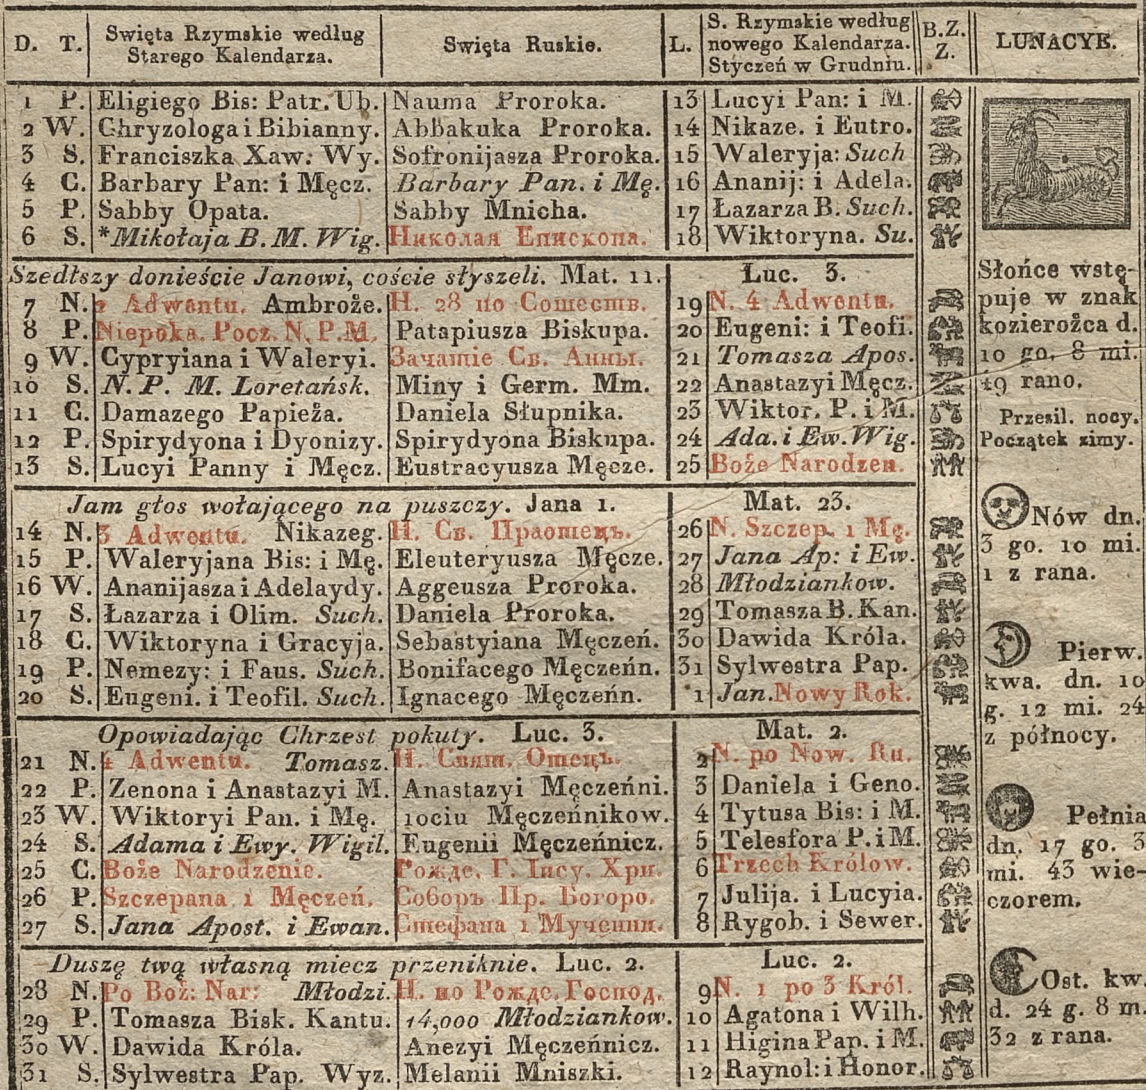 D. T. Swięta Rzymskie według Starego Kalendarza. Swięta Ruskie. L. S. Rzymskie według nowego Kalendarza. Styczeń w Grudniu. B.Z. Z. LUNACYE.
1 P. Eligiego Bis: Patr. Ub. Nauma Proroka. 13 Lucyi Pan: i M.
2 W. Chryzologa i Bibianny. Abbakuka Proroka. 14 Nikaze. i Eutro.
3 S. Franciszka Xaw: Wy. Sofronijasza Proroka. 15 Waleryja: Such
4 C. Barbary Pan: i Męcz. Barbary Pan. i Mę. 16 Ananij: i Adela.
5 P. Sabby Opata. Sabby Mnicha. 17 Łazarza B. Such.
6 S. *Mikołaja B. M. Wig. Николая Епископа. 18 Wiktoryna. Su.
Szedłszy donieście Janowi, coście słyszeli. Mat. 11. Luc. 3.
7 N. 2 Adwentu. Ambroże. Н. 28 по Сошеств. 19 N. 4 Adwentu.
8 P. Niepoka. Pocz. N. P. M. Patapiusza Biskupa. 20 Eugeni: i Teofi.
9 W. Cypryiana i Waleryi. Зачатіе Св. Анны. 21 Tomasza Apos.
10 S. N. P. M. Loretańsk. Miny i Germ. Mm. 22 Anastazyi Męcz.
11 C. Damazego Papieża. Daniela Słupnika. 23 Wiktor. P. i M.
12 P. Spirydyona i Dyonizy. Spirydyona Biskupa. 24 Ada. i Ew. Wig.
13 S. Lucyi Panny i Męcz. Eustracyusza Męcze. 25 Boże Narodzen.
Jam głos wołającego na puszczy. Jana 1. Mat. 23.
14 N. 3 Adwentu. Nikazeg. Н. Св. Праотецъ. 26 N. Szczep. 1 Mę.
15 P. Waleryjana Bis: i Mę. Eleuteryusza Męcze. 27 Jana Ap: i Ew.
16 W. Ananijasza i Adelaydy. Aggeusza Proroka. 28 Młodziankow.
17 S. Łazarza i Olim. Such. Daniela Proroka. 29 Tomasza B. Kan.
18 C. Wiktoryna i Gracyja. Sebastyiana Męczeń. 30 Dawida Króla.
19 P. Nemezy: i Faus. Such. Bonifacego Męczeńn. 31 Sylwestra Pap.
20 S. Eugeni. i Teofil. Such. Ignacego Męczeńn. 1 Jan. Nowy Rok.
Opowiadając Chrzest pokuty. Luc. 3. Mat. 2.
21 N. 4 Adwentu. Tomasz. Н. Свят. Отецъ. 2 N. po Now. Ru.
22 P. Zenona i Anastazyi M. Anastazyi Męczeńni. 3 Daniela i Geno.
23 W. Wiktoryi Pan. i Mę. 10ciu Męczeńnikow. 4 Tytusa Bis: i M.
24 S. Adama i Ewy. Wigil. Eugenii Męczeńnicz. 5 Telesfora P. i M.
25 C. Boże Narodzenie. Рожде. Г. Іису. Хри. 6 Trzech Królow.
26 P. Szczepana 1 Męczeń. Соборъ Пр. Богоро. 7 Julija. i Lucyia.
27 S. Jana Apost. i Ewan. Стефана 1 Мученни. 8 Rygob. i Sewer.
Duszę twą własną miecz przeniknie. Luc. 2. Luc. 2.
28 N. Po Boż: Nar: Młodzi. Н. по Рожде. Господ. 9 N. 1 po 3 Król.
29 P. Tomasza Bisk. Kantu. 14,000 Młodziankow. 10 Agatona i Wilh.
30 W. Dawida Króla. Anezyi Męczeńnicz. 11 Higina Pap. i M.
31 S. Sylwestra Pap. Wyz. Melanii Mniszki. 12 Raynol: i Honor.
Słońce wstę-
puje w znak
kozierożca d.
10 go. 8 mi.
49 rano.
Przesil. nocy.
Początek zimy.
Nów dn.
3 go. 10 mi.
1 z rana.
Pierw.
kwa. dn. 10
g. 12 mi. 24
z północy.
Pełnia
dn. 17 go. 3
mi. 43 wie-
czorem.
Ost. kw
d. 24 g. 8 m.
32 z rana.